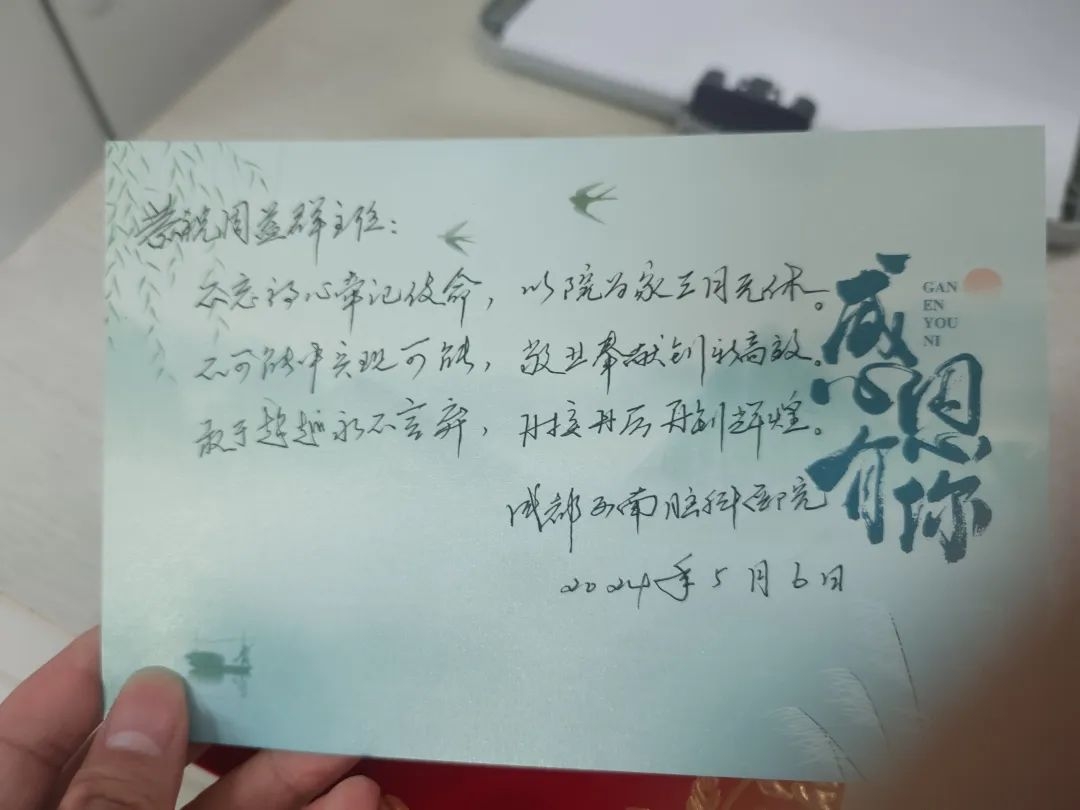 恭祝周益群主任：
不忘初心牢记使命，以院为家三月无休。
不可能中实现可能，敬业奉献创新高效。
敢于超越永不言弃，再接再厉再创辉煌。
成都西南脑科医院
2024年5月6日
感恩有你
GAN
EN
YOU
NI